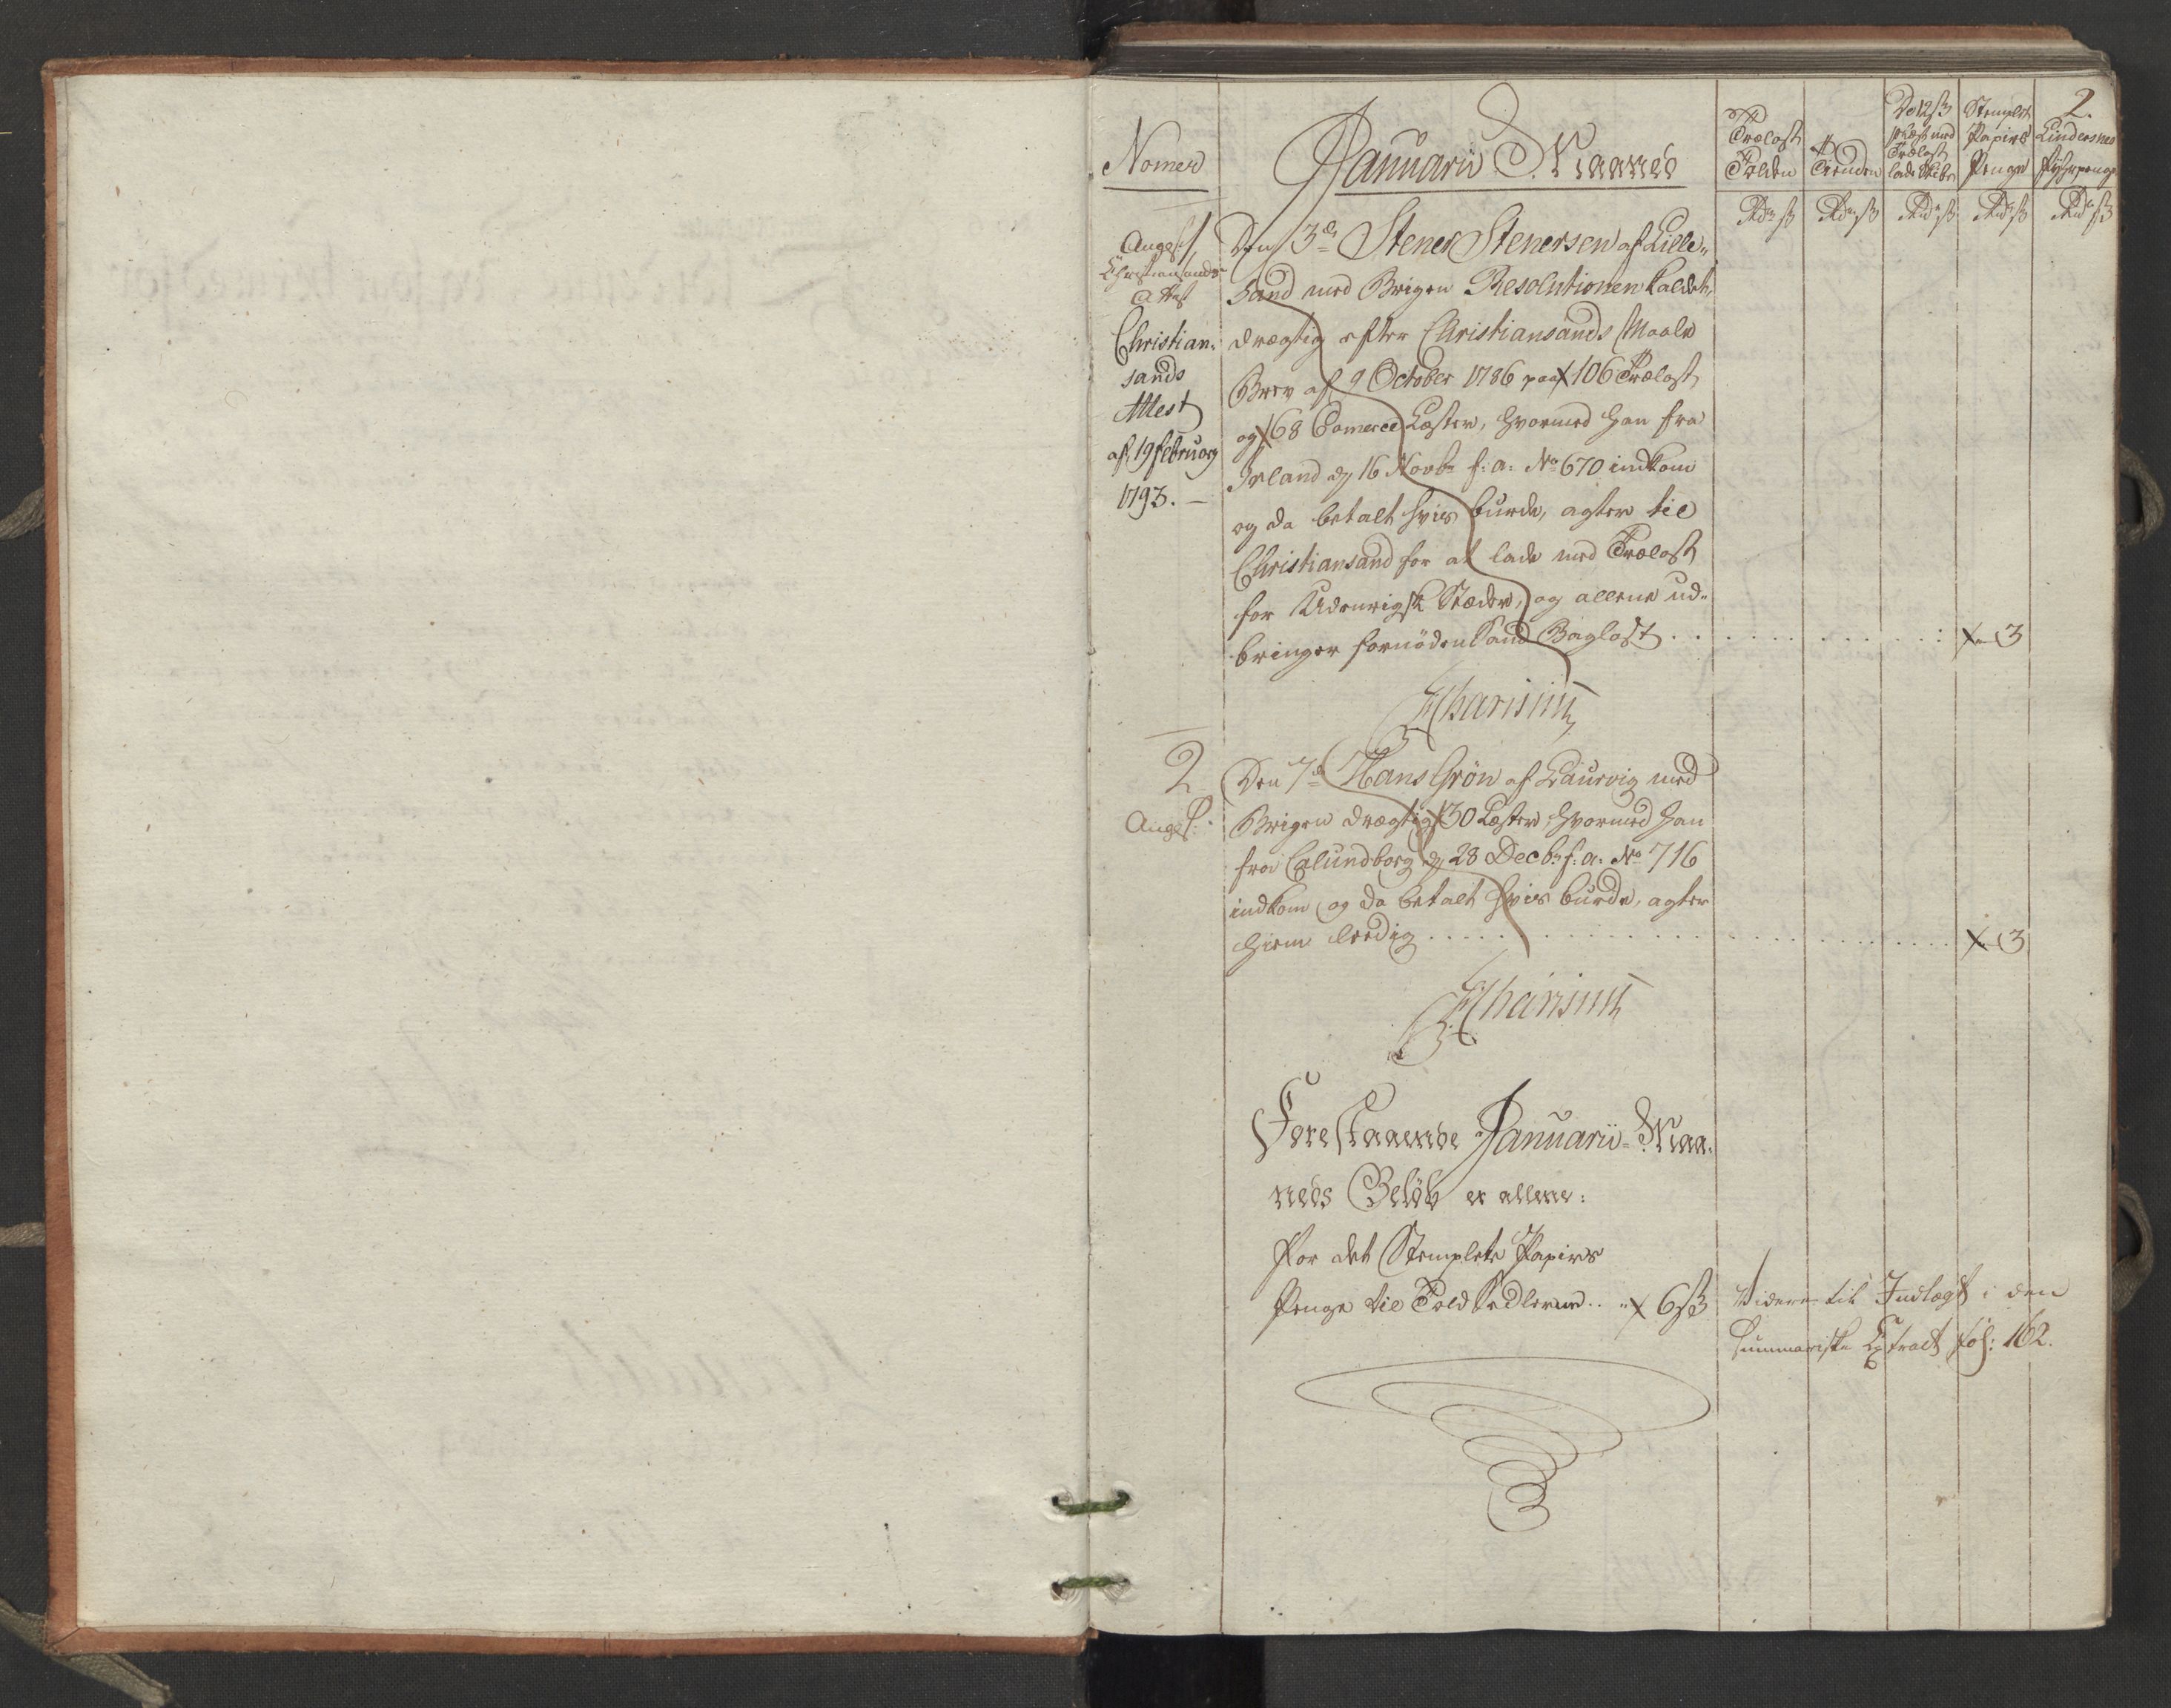 2.
Nomer
Januarii Maaned
Trælast
Tolden
Tienden
De 12 ß
pr Læst med
Trælast
lade Skibe
Stemplet
Papirs
Penge
Lindersnes
Fyhrpenge
Rdr ß
Rdr ß
Rdr ß
Rdr ß
Rdr ß
1
Angf:
Christiansands
Attest
Christian-
sands
Attest
af 19 Februarÿ
1793. —
Den 3de Stener Stenersen af Lille-
sand med Brigen Resolutionen kaldet,
drægtig efter Christiansands Maale
Brev af 9 October 1786 paa 106 Trælast
og 68 Comerce Læster, hvormed han fra
Irland d 16 Novbr f: a: No 670 indkom
og da betalt hvis burde, agter til
Christiansand for at lade med Trælast
for Udenrigsk Stæder, og allene ud-
bringer fornöden Sand Baglast . . . . . x - 3
FCharisius
2
Angf:
Den 7de Hans Grön af Laurvig med
Brigen drægtig 30 Læster, hvormed han
fra Calundborg d 28 Decbr f: a: No 716
indkom og da betalt hvis burde, agter
hiem leedig . . . . . x - 3
FCharisius
Forestaaende Januarii Maa-
neds Belöb er allene:
For det Stemplete Papirs
Penge til Told Sedlerne . . " x 6 ß
Videre til Indtægt i den
Summariske Extract fol: 162.